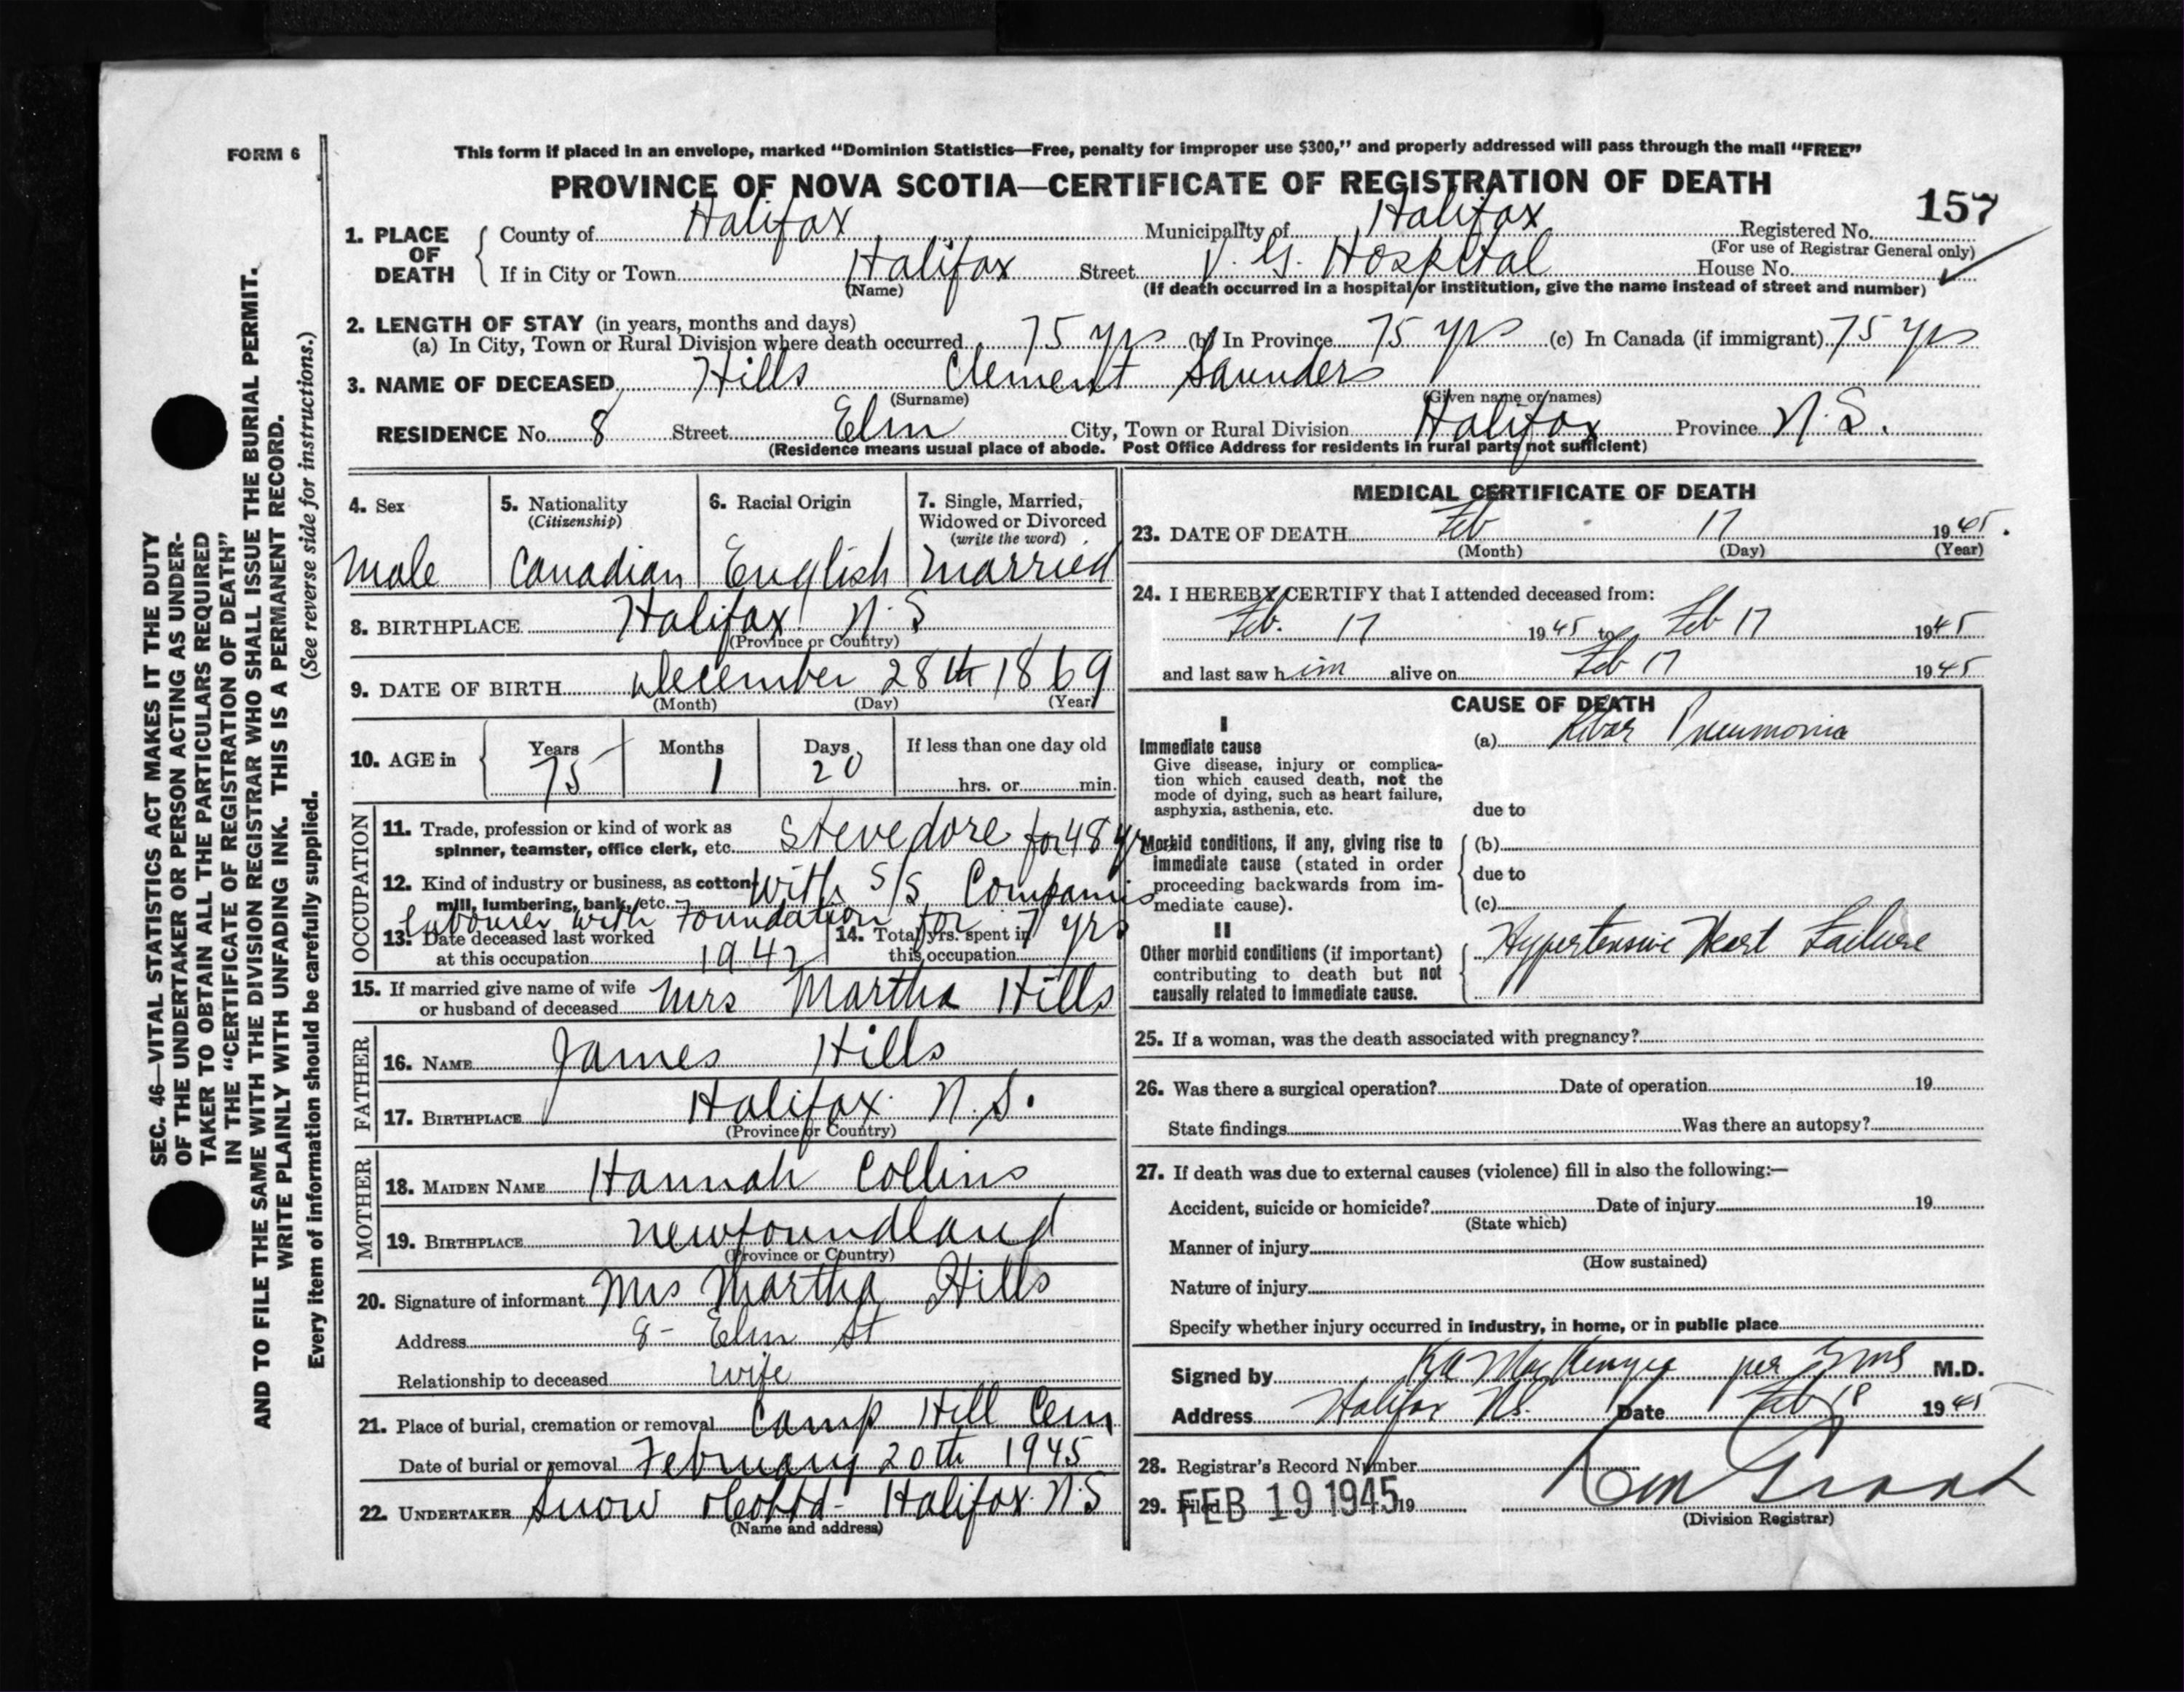 FORM 6
This form if placed in an envelope, marked "Dominion Statistics—Free, penalty for improper use $300," and properly addressed will pass through the mail "FREE"
PROVINCE OF NOVA SCOTIA—CERTIFICATE OF REGISTRATION OF DEATH
157
1. PLACE OF DEATH
County of Halifax Municipality of Halifax Registered No.
(For use of Registrar General only)
If in City or Town Halifax Street V. G. Hospital House No.
(Name) (If death occurred in a hospital or institution, give the name instead of street and number)
2. LENGTH OF STAY (in years, months and days)
(a) In City, Town or Rural Division where death occurred 75 yrs (b) In Province 75 yrs (c) In Canada (if immigrant) 75 yrs
3. NAME OF DECEASED Hills Clement Saunders
(Surname) (Given name or names)
RESIDENCE No. 8 Street Elm City, Town or Rural Division Halifax Province N.S.
(Residence means usual place of abode. Post Office Address for residents in rural parts not sufficient)
4. Sex
Male
5. Nationality
(Citizenship)
Canadian
6. Racial Origin
English
7. Single, Married,
Widowed or Divorced
(write the word)
Married
8. BIRTHPLACE Halifax N.S
(Province or Country)
9. DATE OF BIRTH December 28th 1869
(Month) (Day) (Year)
10. AGE in
Years Months Days If less than one day old
75 1 20 hrs. or min.
OCCUPATION
11. Trade, profession or kind of work as
spinner, teamster, office clerk, etc. Stevedore for 48 yrs
12. Kind of industry or business, as cotton
mill, lumbering, bank, etc. With S/S Companies
Labourer with Foundation for 7 yrs
13. Date deceased last worked
at this occupation 1942
14. Total yrs. spent in
this occupation
15. If married give name of wife
or husband of deceased Mrs Martha Hills
FATHER
16. NAME James Hills
17. BIRTHPLACE Halifax N.S.
(Province or Country)
MOTHER
18. MAIDEN NAME Hannah Collins
19. BIRTHPLACE Newfoundland
(Province or Country)
20. Signature of informant Mrs Martha Hills
Address 8 - Elm St
Relationship to deceased wife
21. Place of burial, cremation or removal Camp Hill Cem
Date of burial or removal February 20th 1945
22. UNDERTAKER Snow Halifax N.S
(Name and address)
MEDICAL CERTIFICATE OF DEATH
23. DATE OF DEATH Feb 17 1945.
(Month) (Day) (Year)
24. I HEREBY CERTIFY that I attended deceased from:
Feb. 17 1945 to Feb 17 1945
and last saw him alive on Feb 17 1945
CAUSE OF DEATH
I
Immediate cause
Give disease, injury or complica-
tion which caused death, not the
mode of dying, such as heart failure,
asphyxia, asthenia, etc.
(a) Lobar Pneumonia
due to
Morbid conditions, if any, giving rise to
immediate cause (stated in order
proceeding backwards from im-
mediate cause).
(b)
due to
(c)
II
Other morbid conditions (if important)
contributing to death but not
causally related to immediate cause.
Hypertensive Heart Failure
25. If a woman, was the death associated with pregnancy?
26. Was there a surgical operation? Date of operation 19
State findings Was there an autopsy?
27. If death was due to external causes (violence) fill in also the following:—
Accident, suicide or homicide? Date of injury 19
(State which)
Manner of injury
(How sustained)
Nature of injury
Specify whether injury occurred in industry, in home, or in public place
Signed by MacKenzie per M.D.
Address Halifax N.S. Date Feb 18 1945
28. Registrar's Record Number
29. Filed FEB 19 1945 19
(Division Registrar)
SEC. 46—VITAL STATISTICS ACT MAKES IT THE DUTY
OF THE UNDERTAKER OR PERSON ACTING AS UNDER-
TAKER TO OBTAIN ALL THE PARTICULARS REQUIRED
IN THE "CERTIFICATE OF REGISTRATION OF DEATH"
AND TO FILE THE SAME WITH THE DIVISION REGISTRAR WHO SHALL ISSUE THE BURIAL PERMIT.
WRITE PLAINLY WITH UNFADING INK. THIS IS A PERMANENT RECORD.
Every item of information should be carefully supplied. (See reverse side for instructions.)